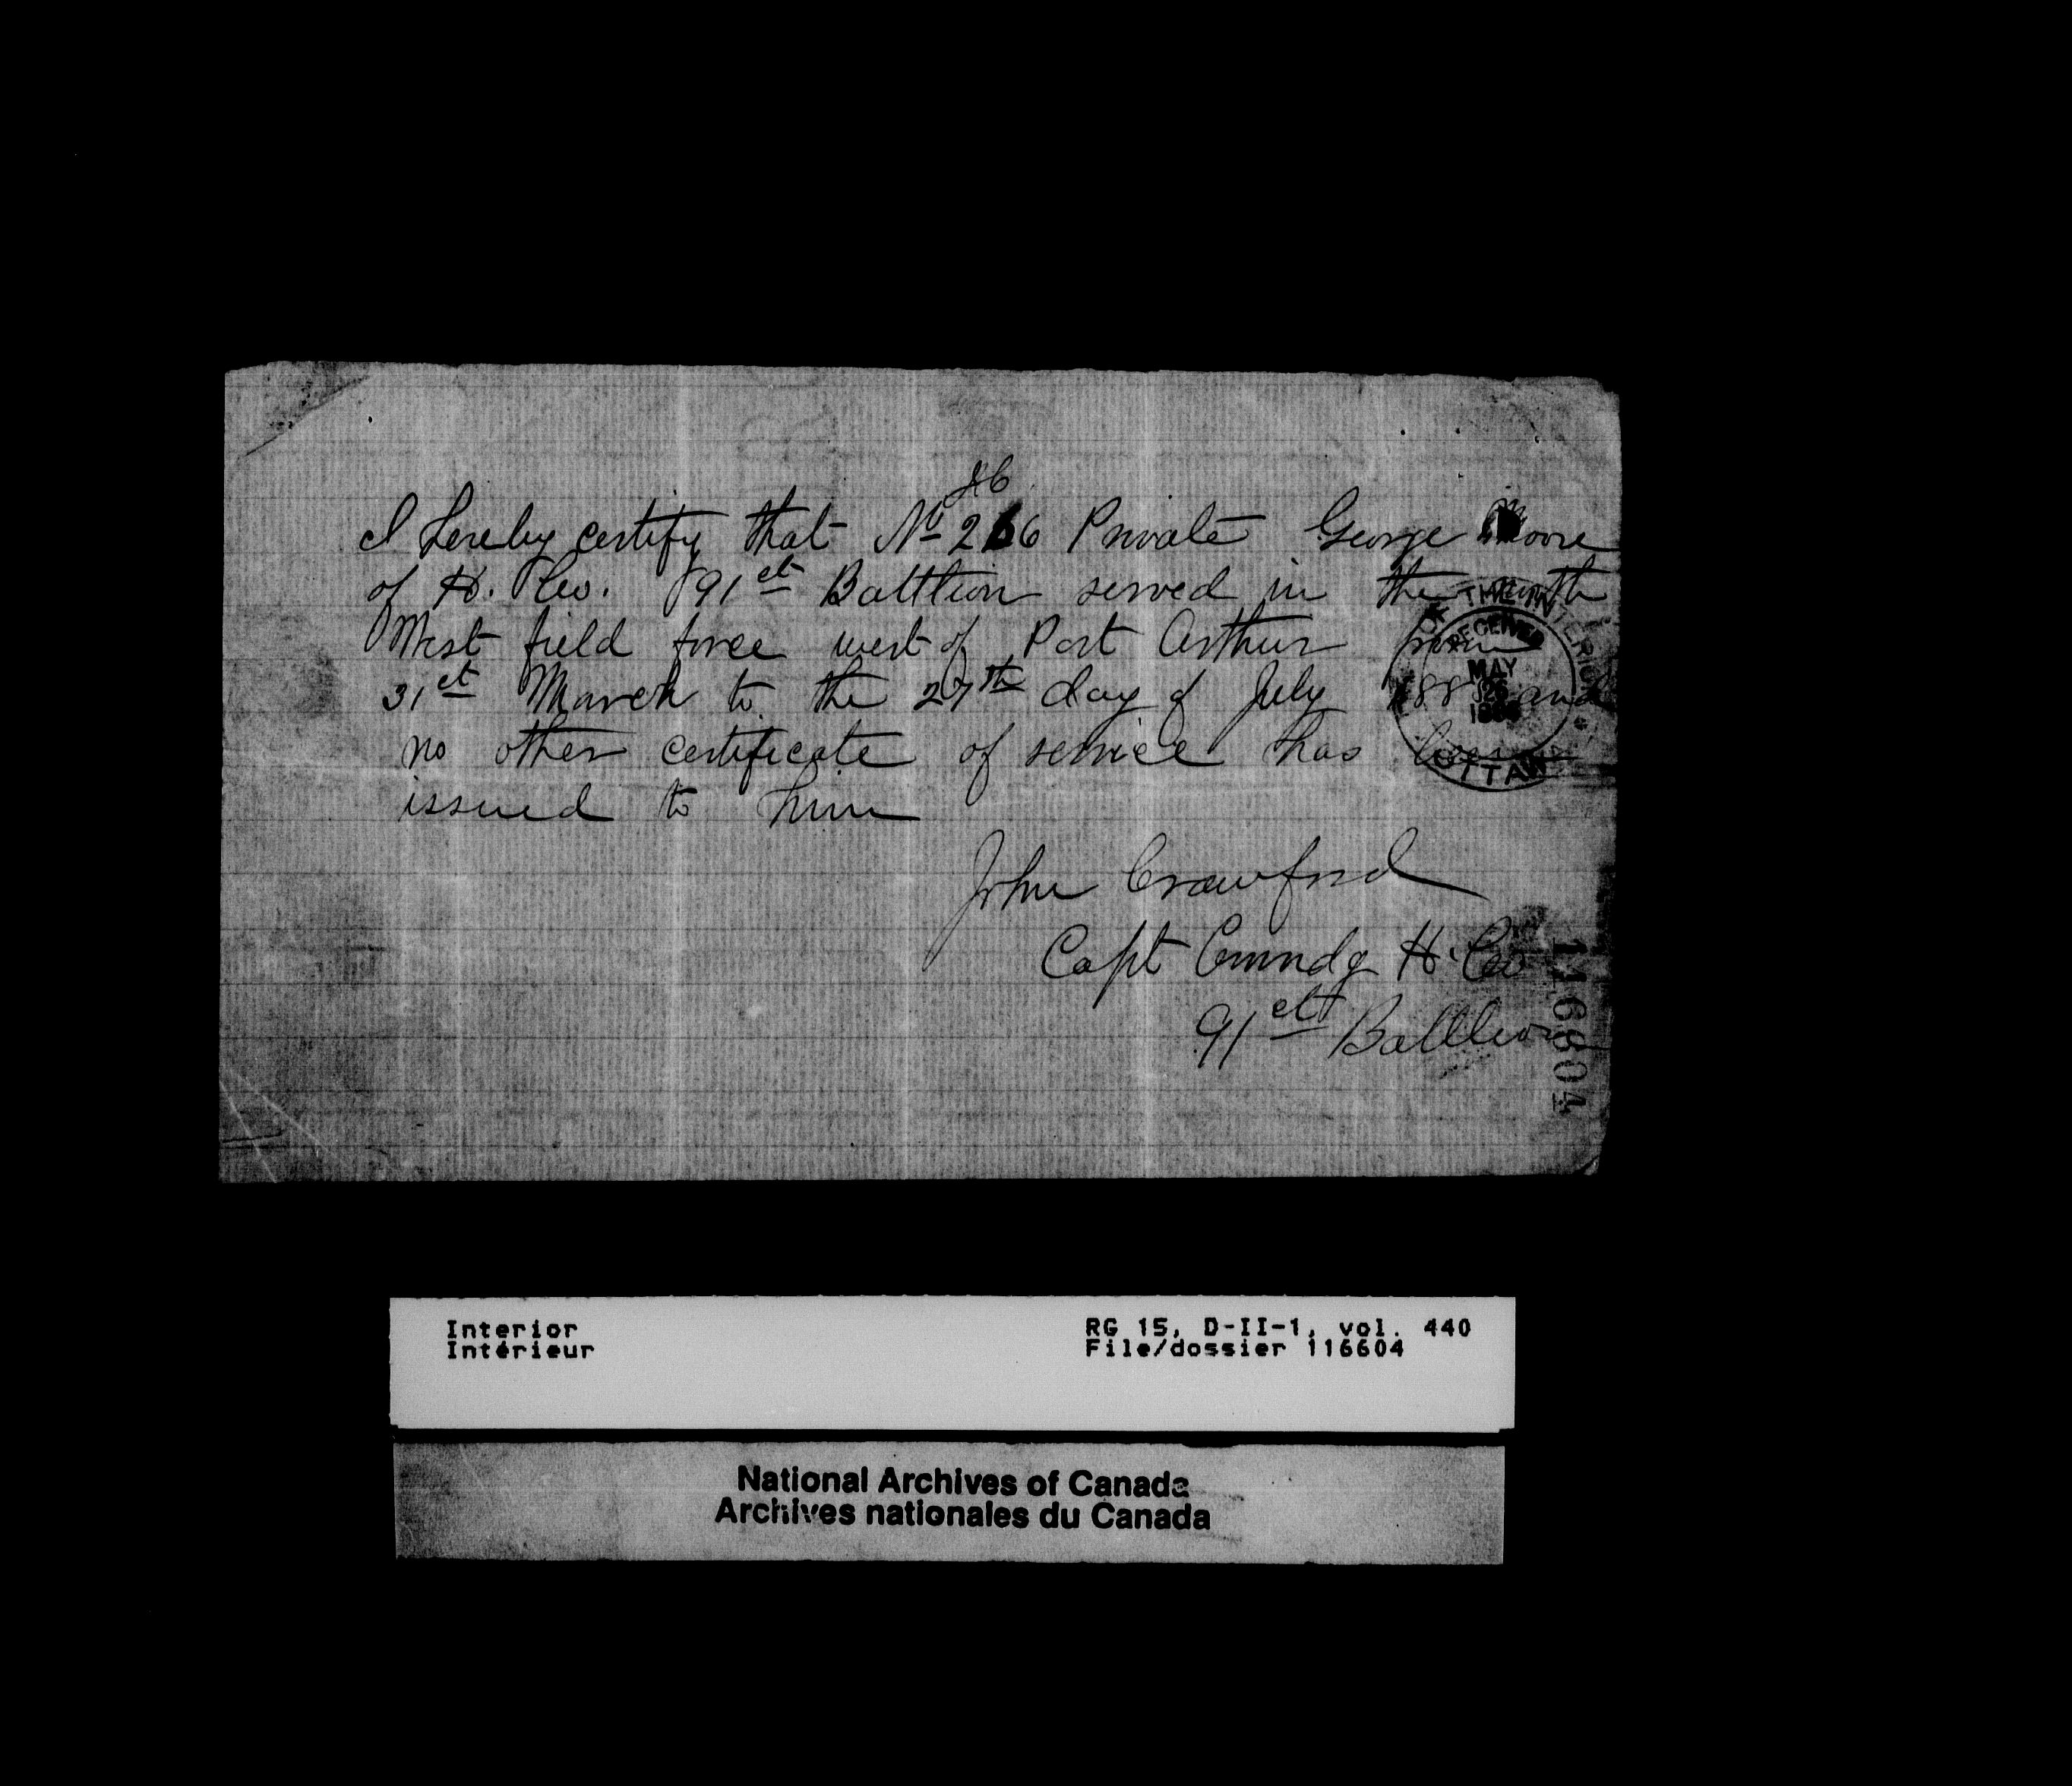 I hereby certify that No 266 Private George Moore
of H. Co. 91st Battlion served in the North
West field force west of Port Arthur from
31st March to the 27th day of July 1885 and
no other certificate of service has been
issued to him
John Crawford
Capt Cmmndg H. Co
91st Battlion
OF THE INTERIOR
RECEIVED
MAY
26
OTTAWA
116604
Interior
Intérieur
RG 15, D-II-1, vol. 440
File/dossier 116604
National Archives of Canada
Archives nationales du Canada